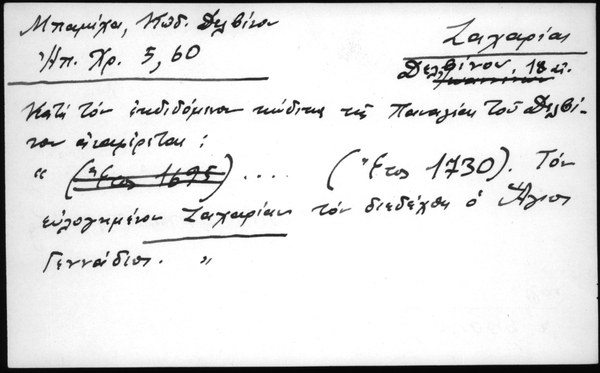 Μπαμίχα, Κώδ. Δελβίνου
Ἠπ. Χρ. 5, 60
Ζαχαρίας
Δελβίνου, 18 αἰ.
Ἰωαννίνων
Κατὰ τὸν ἐκδιδόμενον κώδικα τῆς Παναγίας τοῦ Δελβί-
νου ἀναφέρεται:
" (Ἔτος 1695) .... (Ἔτος 1730). Τὸν
εὐλογημένον Ζαχαρίαν τὸν διεδέχθη ὁ Ἅγιος
Γεννάδιος. "